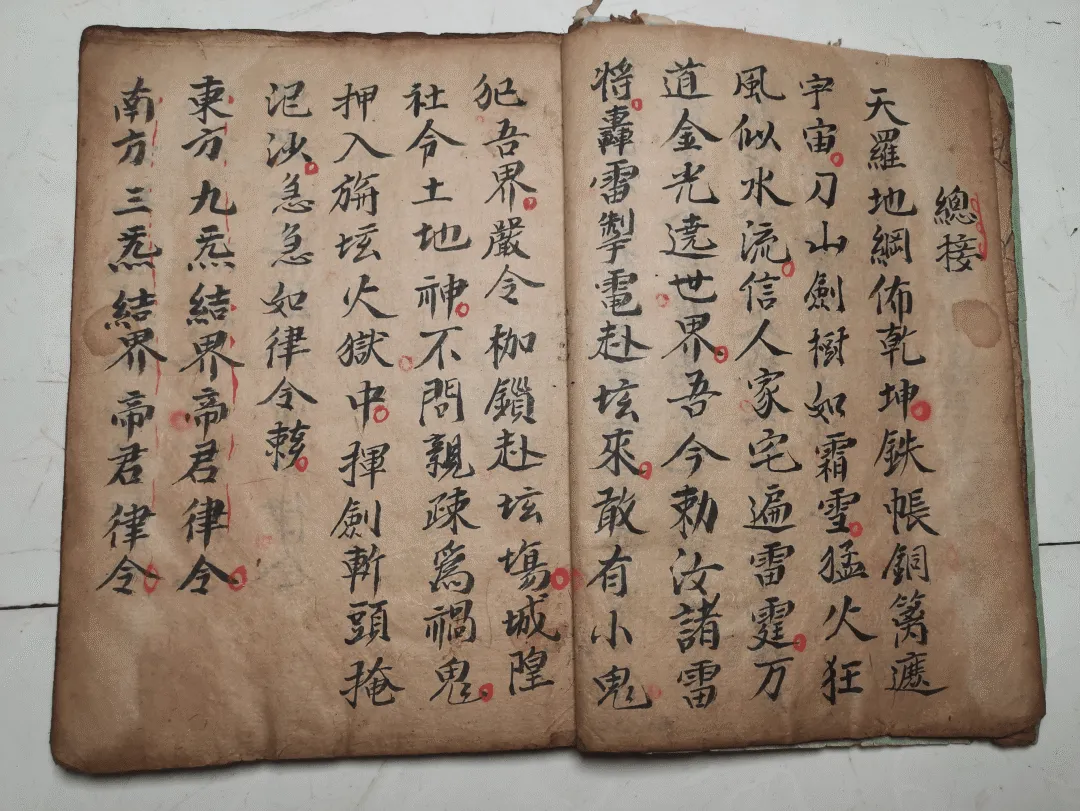 總接
天羅地網佈乾坤鉄帳銅籬遮
宇宙刀山劍樹如霜雪猛火狂
風似水流信人家宅遍雷霆万
道金光遶世界吾今勅汝諸雷
将轟雷掣電赴坛來敢有小鬼
犯吾界嚴令枷鎖赴坛塲城隍
社令土地神不問親疎為禍鬼
押入旃坛火獄中揮劍斬頭掩
泥沙急急如律令敕
東方九炁結界帝君律令
南方三炁結界帝君律令